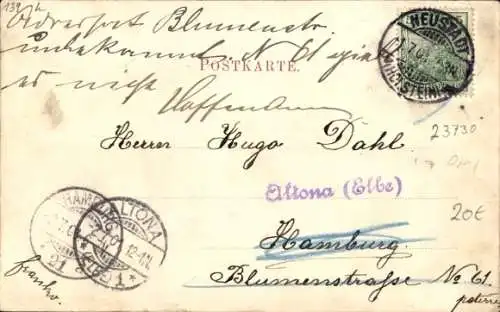 139
Adressat Blumenstr.
unbekannt. N 61 giebt
es nicht
POSTKARTE.
NEUSTADT
(HOLSTEIN)
Herrn Hugo Dahl
23730
Altona (Elbe)
20€
HAMBURG
ALTONA
(ELBE)
12-1N.
1
Hamburg.
Blumenstraße No 61.
Franko.